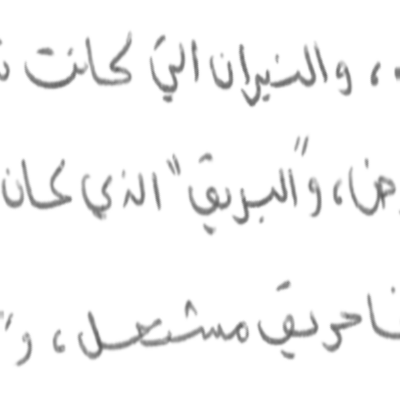 ، والنيران التي كانت
، و"البريق" الذي كان
حريق مشتعل، و"